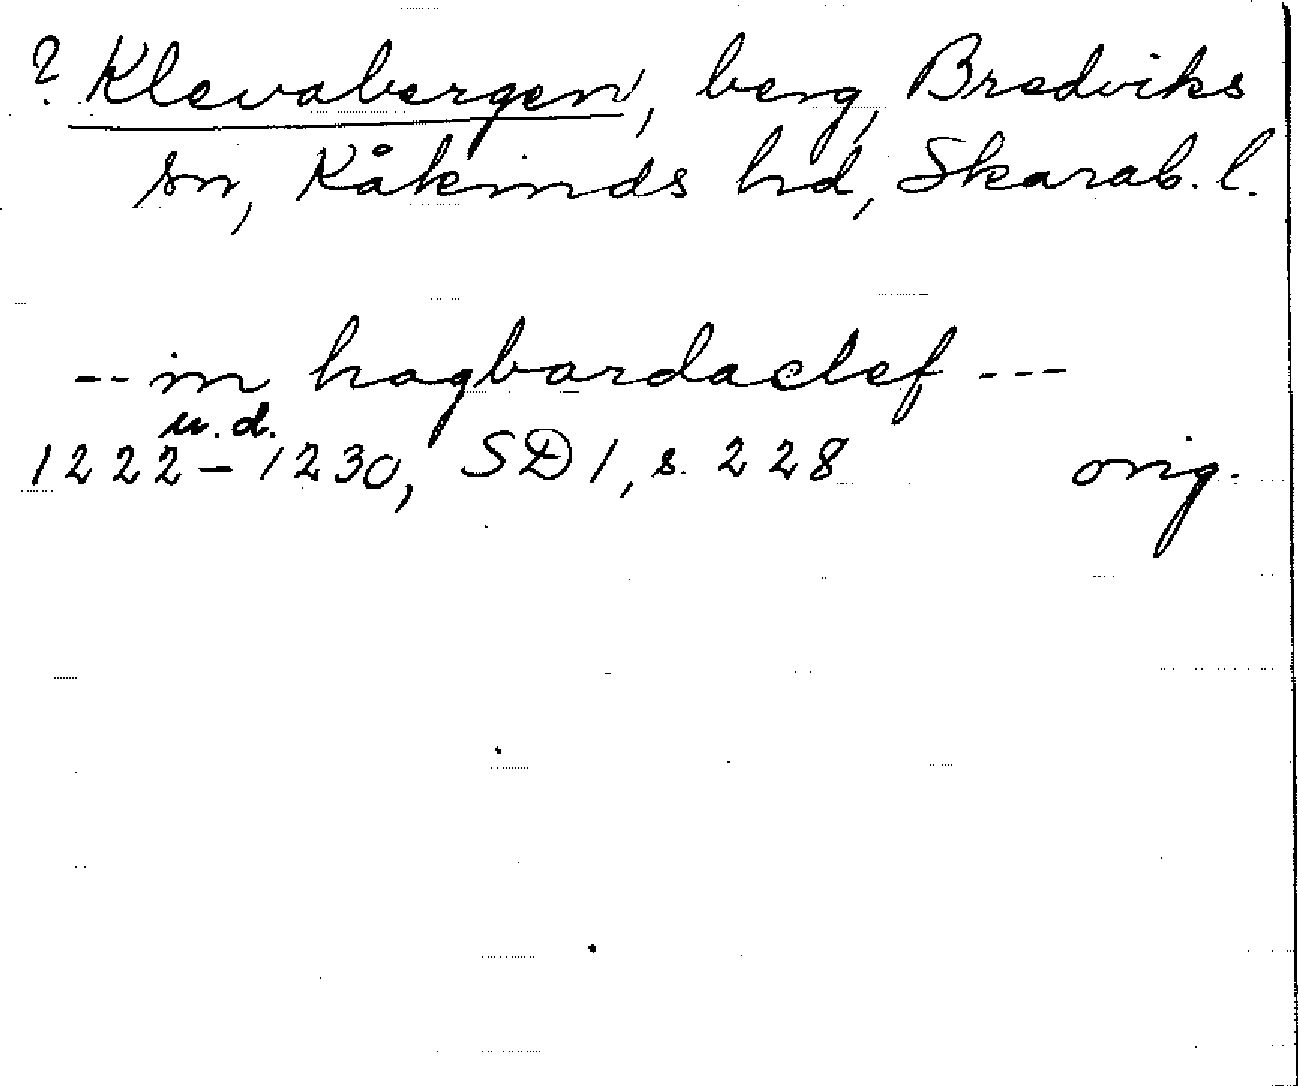 ? Klevabergen, berg, Bredviks
sn, Kåkinds hd, Skarab. l.
-- in hagbardaclef ---
u. d.
1222-1230, SD 1, s. 228 orig.